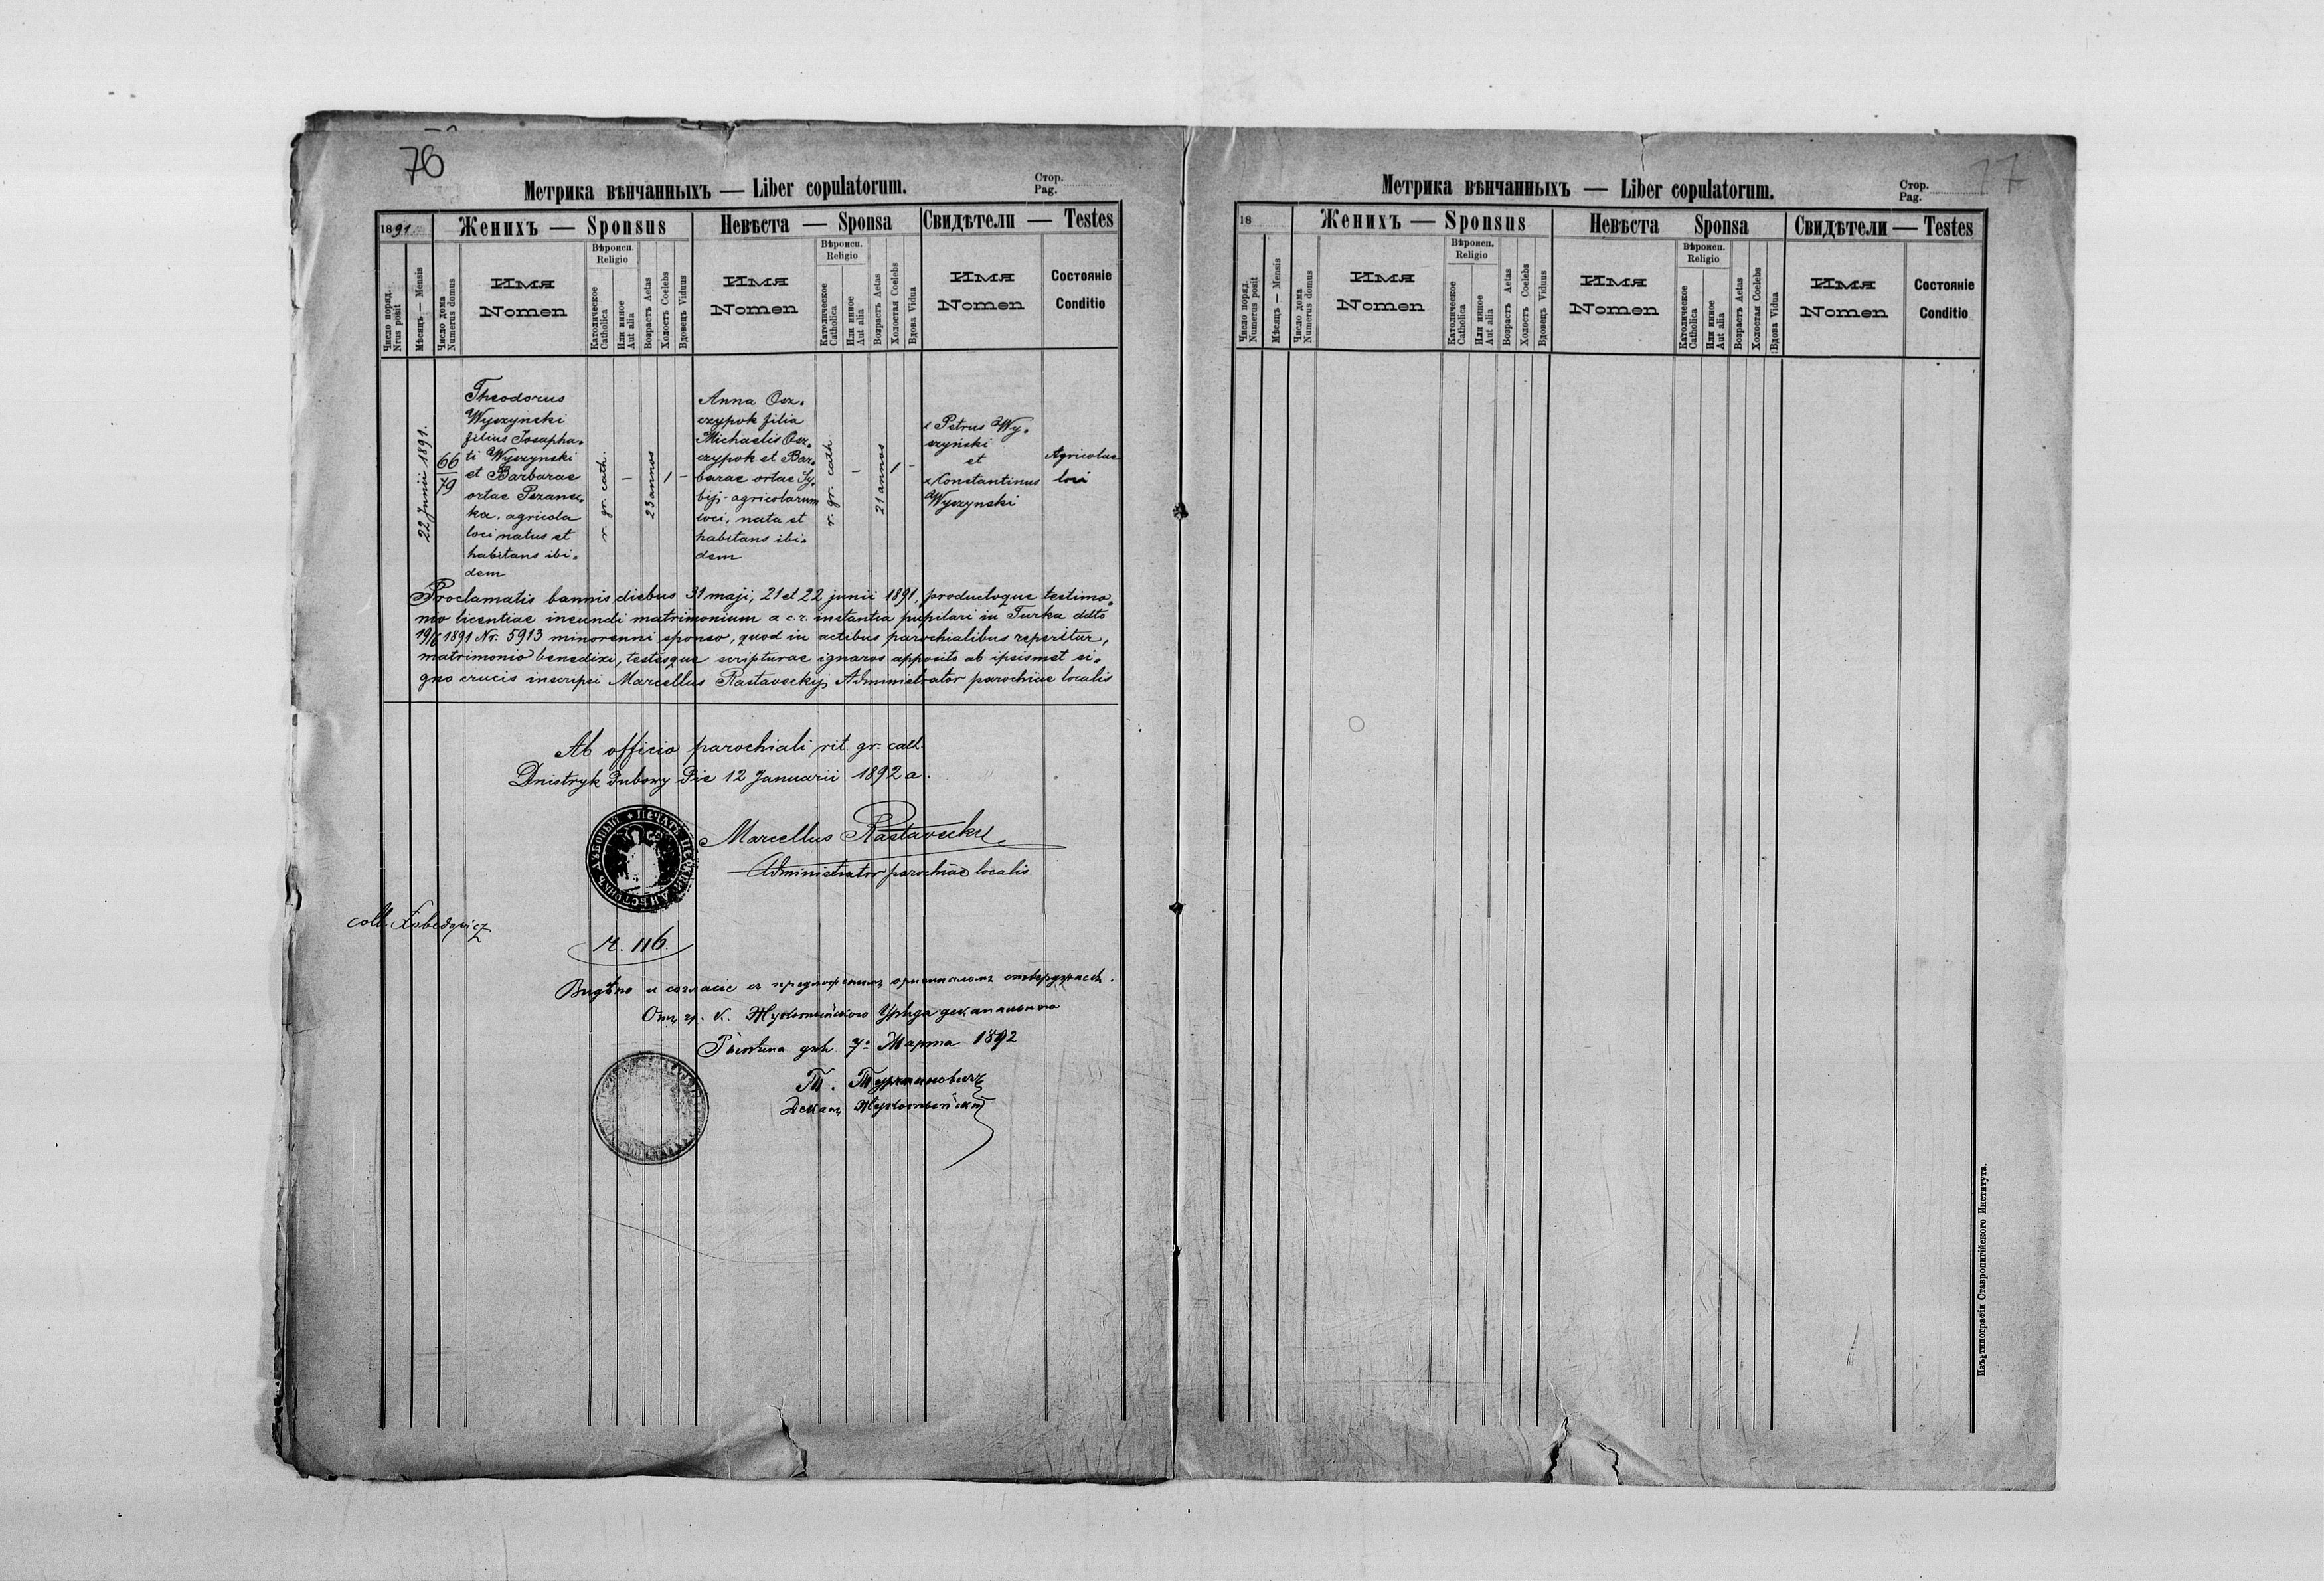 76
Метрика вѣнчанныхъ — Liber copulatorum.
Стор.
Pag.
1891.
Женихъ — Sponsus
Невѣста — Sponsa
Свидѣтели — Testes
Число поряд.
Nrus posit
Мѣсяцъ — Mensis
Число дома
Numerus domus
Имя
Nomen
Вѣроисп.
Religio
Католическое
Catholica
Или инное
Aut alia
Возрастъ Aetas
Холостъ Coelebs
Вдовецъ Viduus
Имя
Nomen
Вѣроисп.
Religio
Католическое
Catholica
Или инное
Aut alia
Возрастъ Aetas
Холостая Coelebs
Вдова Vidua
Имя
Nomen
Состояніе
Conditio
22 Junii 1891.
66
79
Theodorus
Wyszynski
filius Josapha-
ti Wyszynski
et Barbarae
ortae Pszans-
ka, agricola
loci natus et
habitans ibi-
dem
r. gr. cath.
–
23 annos
1
–
Anna Osz-
czypok filia
Michaelis Osz-
czypok et Bar-
barae ortae Sy-
bij - agricolarum
loci, nata et
habitans ibi-
dem
r. gr. cath.
–
21 annos
1
–
x Petrus Wy-
szyński
et
x Constantinus
Wyszynski
Agricolae
loci
Proclamatis bannis diebus 31 maji, 21 et 22 junii 1891, productoque testimo-
nio licentiae ineundi matrimonium a c. r. instantia pupilari in Turka ddto
19/6 1891 Nr. 5913 minorenni sponso, quod in actibus parochialibus reperitur,
matrimonio benedixi, testesque scripturae ignaros apposito ab ipsismet si-
gno crucis inscripsi Marcellus Rastaweckyj Administrator parochiae localis
Ab officio parochiali rit. gr. cath.
Dnistryk Dubowy Die 12 Januarii 1892 a.
Marcellus Rastawecky
Administrator parochiae localis
coll.
Ч. 116.
Видѣно и согласіе съ предложенымъ оригиналомъ стверджаесь.
Отъ гр. к. Жукотинского Уряда деканального
дня 7о Марта 1892
Деканъ Жукотинскій
77
Метрика вѣнчанныхъ — Liber copulatorum.
Стор.
Pag.
18
Женихъ — Sponsus
Невѣста Sponsa
Свидѣтели — Testes
Число поряд.
Numerus posit
Мѣсяцъ — Mensis
Число дома
Numerus domus
Имя
Nomen
Вѣроисп.
Religio
Католическое
Catholica
Или инное
Aut alia
Возрастъ Aetas
Холостъ Coelebs
Вдовецъ Viduus
Имя
Nomen
Вѣроисп.
Religio
Католическое
Catholica
Или инное
Aut alia
Возрастъ Aetas
Холостая Coelebs
Вдова Vidua
Имя
Nomen
Состояніе
Conditio
Изъ типографіи Ставропигійского Института.